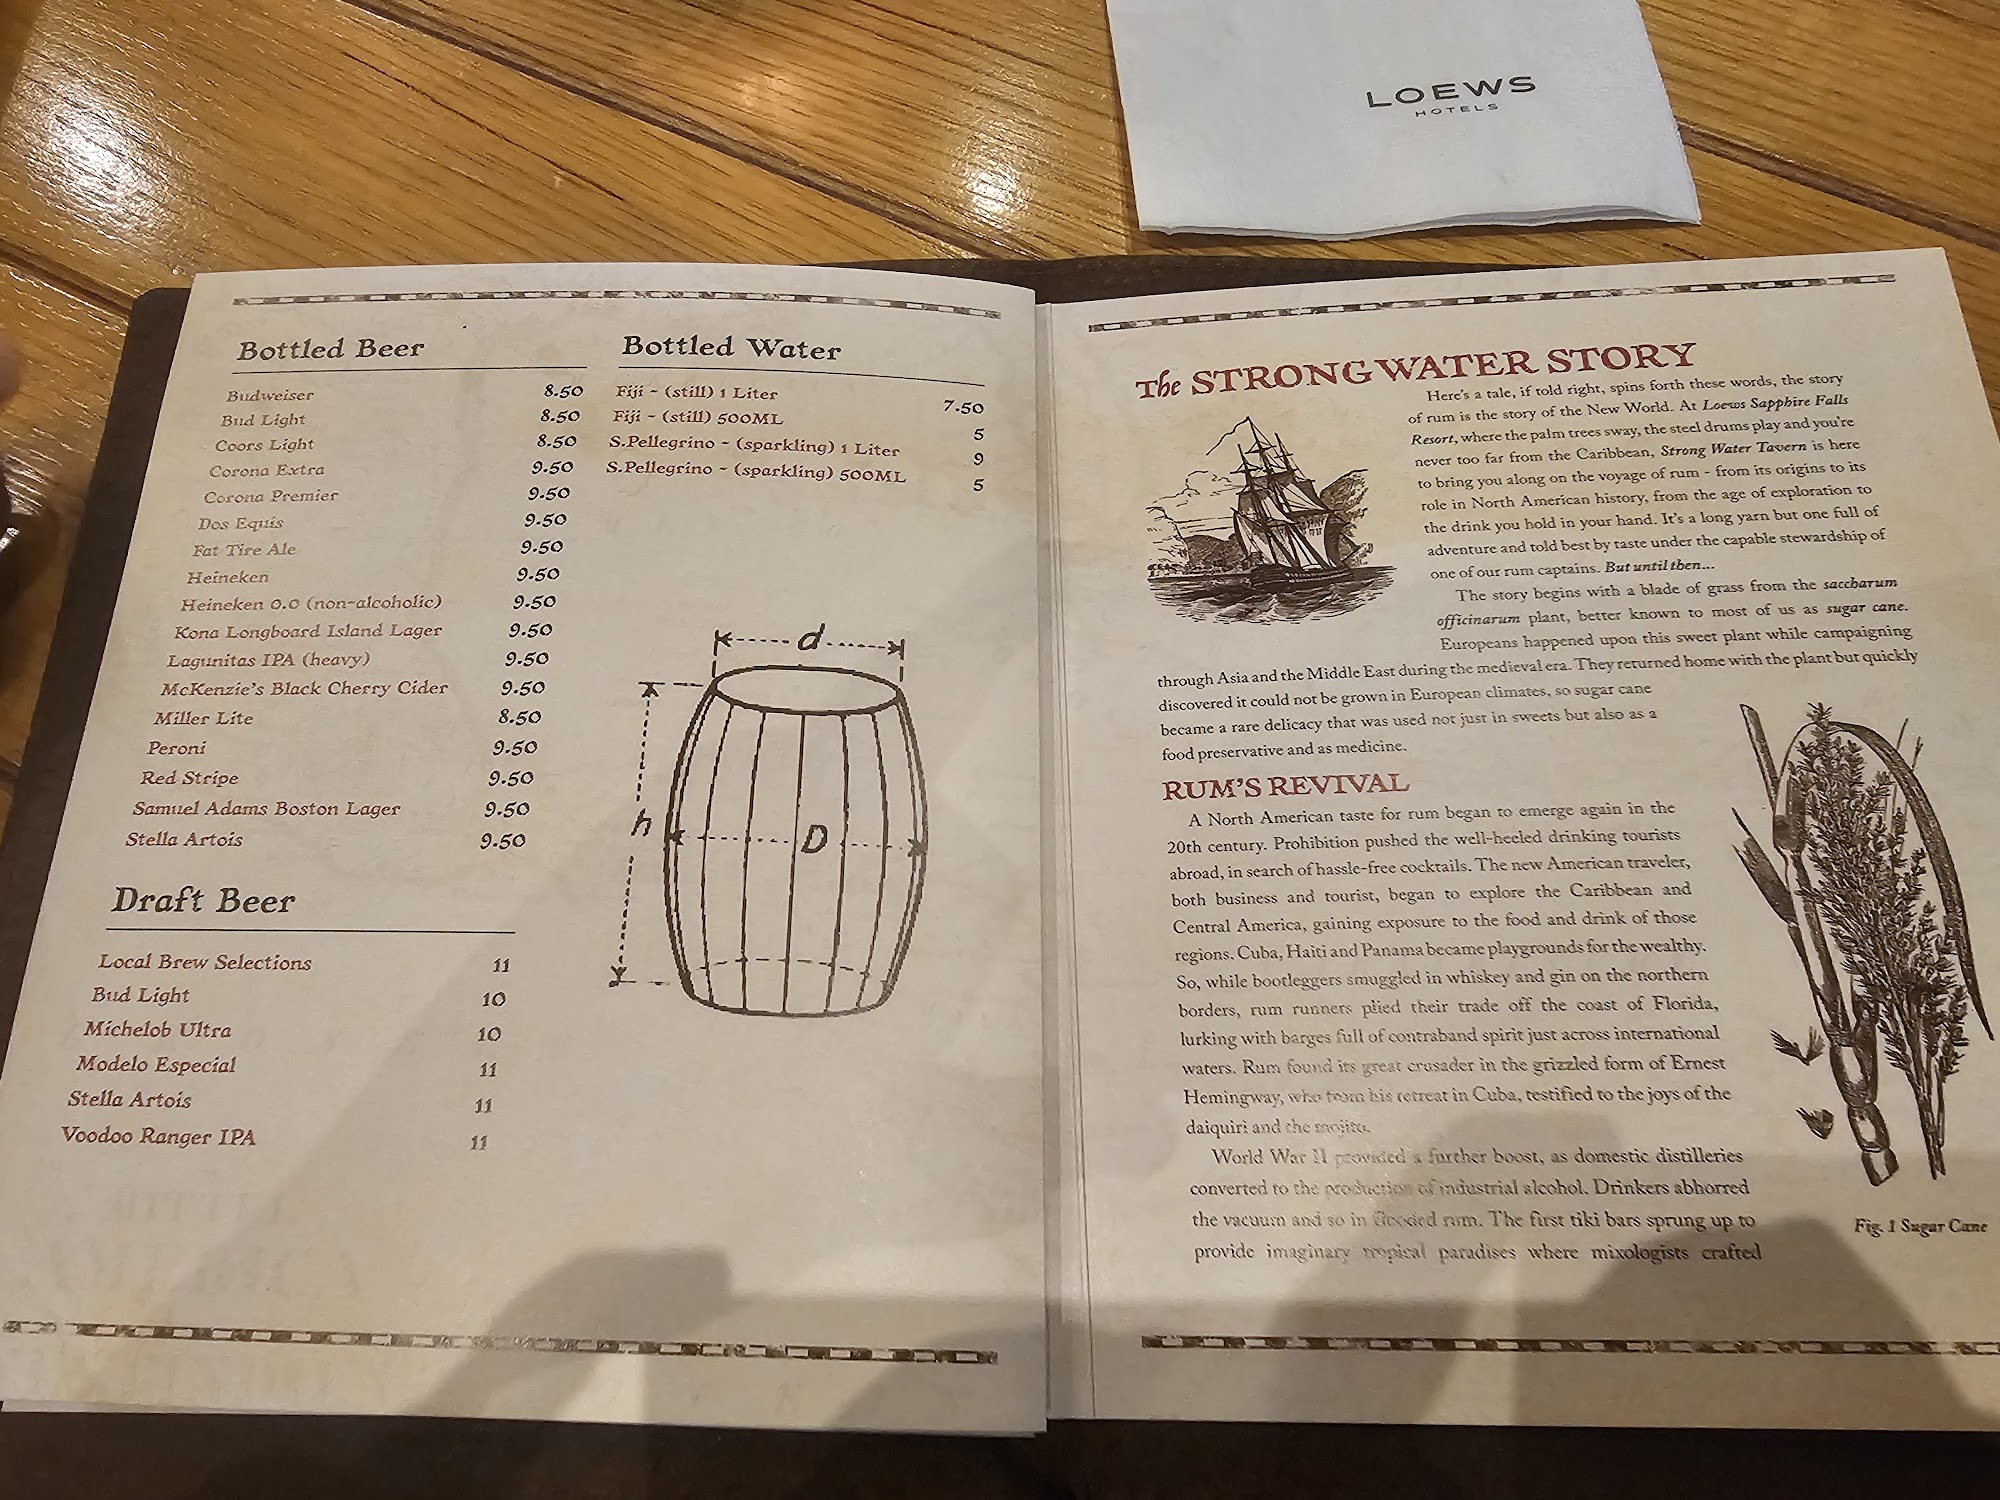 LOEWS
HOTELS
Bottled Beer
Budweiser 8.50
Bud Light 8.50
Coors Light 8.50
Corona Extra 9.50
Corona Premier 9.50
Dos Equis 9.50
Fat Tire Ale 9.50
Heineken 9.50
Heineken 0.0 (non-alcoholic) 9.50
Kona Longboard Island Lager 9.50
Lagunitas IPA (heavy) 9.50
McKenzie's Black Cherry Cider 9.50
Miller Lite 8.50
Peroni 9.50
Red Stripe 9.50
Samuel Adams Boston Lager 9.50
Stella Artois 9.50
Draft Beer
Local Brew Selections 11
Bud Light 10
Michelob Ultra 10
Modelo Especial 11
Stella Artois 11
Voodoo Ranger IPA 11
Bottled Water
Fiji - (still) 1 Liter 7.50
Fiji - (still) 500ML 5
S.Pellegrino - (sparkling) 1 Liter 9
S.Pellegrino - (sparkling) 500ML 5
d
h
D
The STRONG WATER STORY
Here's a tale, if told right, spins forth these words, the story
of rum is the story of the New World. At Loews Sapphire Falls
Resort, where the palm trees sway, the steel drums play and you're
never too far from the Caribbean, Strong Water Tavern is here
to bring you along on the voyage of rum - from its origins to its
role in North American history, from the age of exploration to
the drink you hold in your hand. It's a long yarn but one full of
adventure and told best by taste under the capable stewardship of
one of our rum captains. But until then...
The story begins with a blade of grass from the saccharum
officinarum plant, better known to most of us as sugar cane.
Europeans happened upon this sweet plant while campaigning
through Asia and the Middle East during the medieval era. They returned home with the plant but quickly
discovered it could not be grown in European climates, so sugar cane
became a rare delicacy that was used not just in sweets but also as a
food preservative and as medicine.
RUM'S REVIVAL
A North American taste for rum began to emerge again in the
20th century. Prohibition pushed the well-heeled drinking tourists
abroad, in search of hassle-free cocktails. The new American traveler,
both business and tourist, began to explore the Caribbean and
Central America, gaining exposure to the food and drink of those
regions. Cuba, Haiti and Panama became playgrounds for the wealthy.
So, while bootleggers smuggled in whiskey and gin on the northern
borders, rum runners plied their trade off the coast of Florida,
lurking with barges full of contraband spirit just across international
waters. Rum found its great crusader in the grizzled form of Ernest
Hemingway, who from his retreat in Cuba, testified to the joys of the
daiquiri and the mojito.
World War II provided a further boost, as domestic distilleries
converted to the production of industrial alcohol. Drinkers abhorred
the vacuum and so in flooded rum. The first tiki bars sprung up to
provide imaginary tropical paradises where mixologists crafted
Fig. 1 Sugar Cane